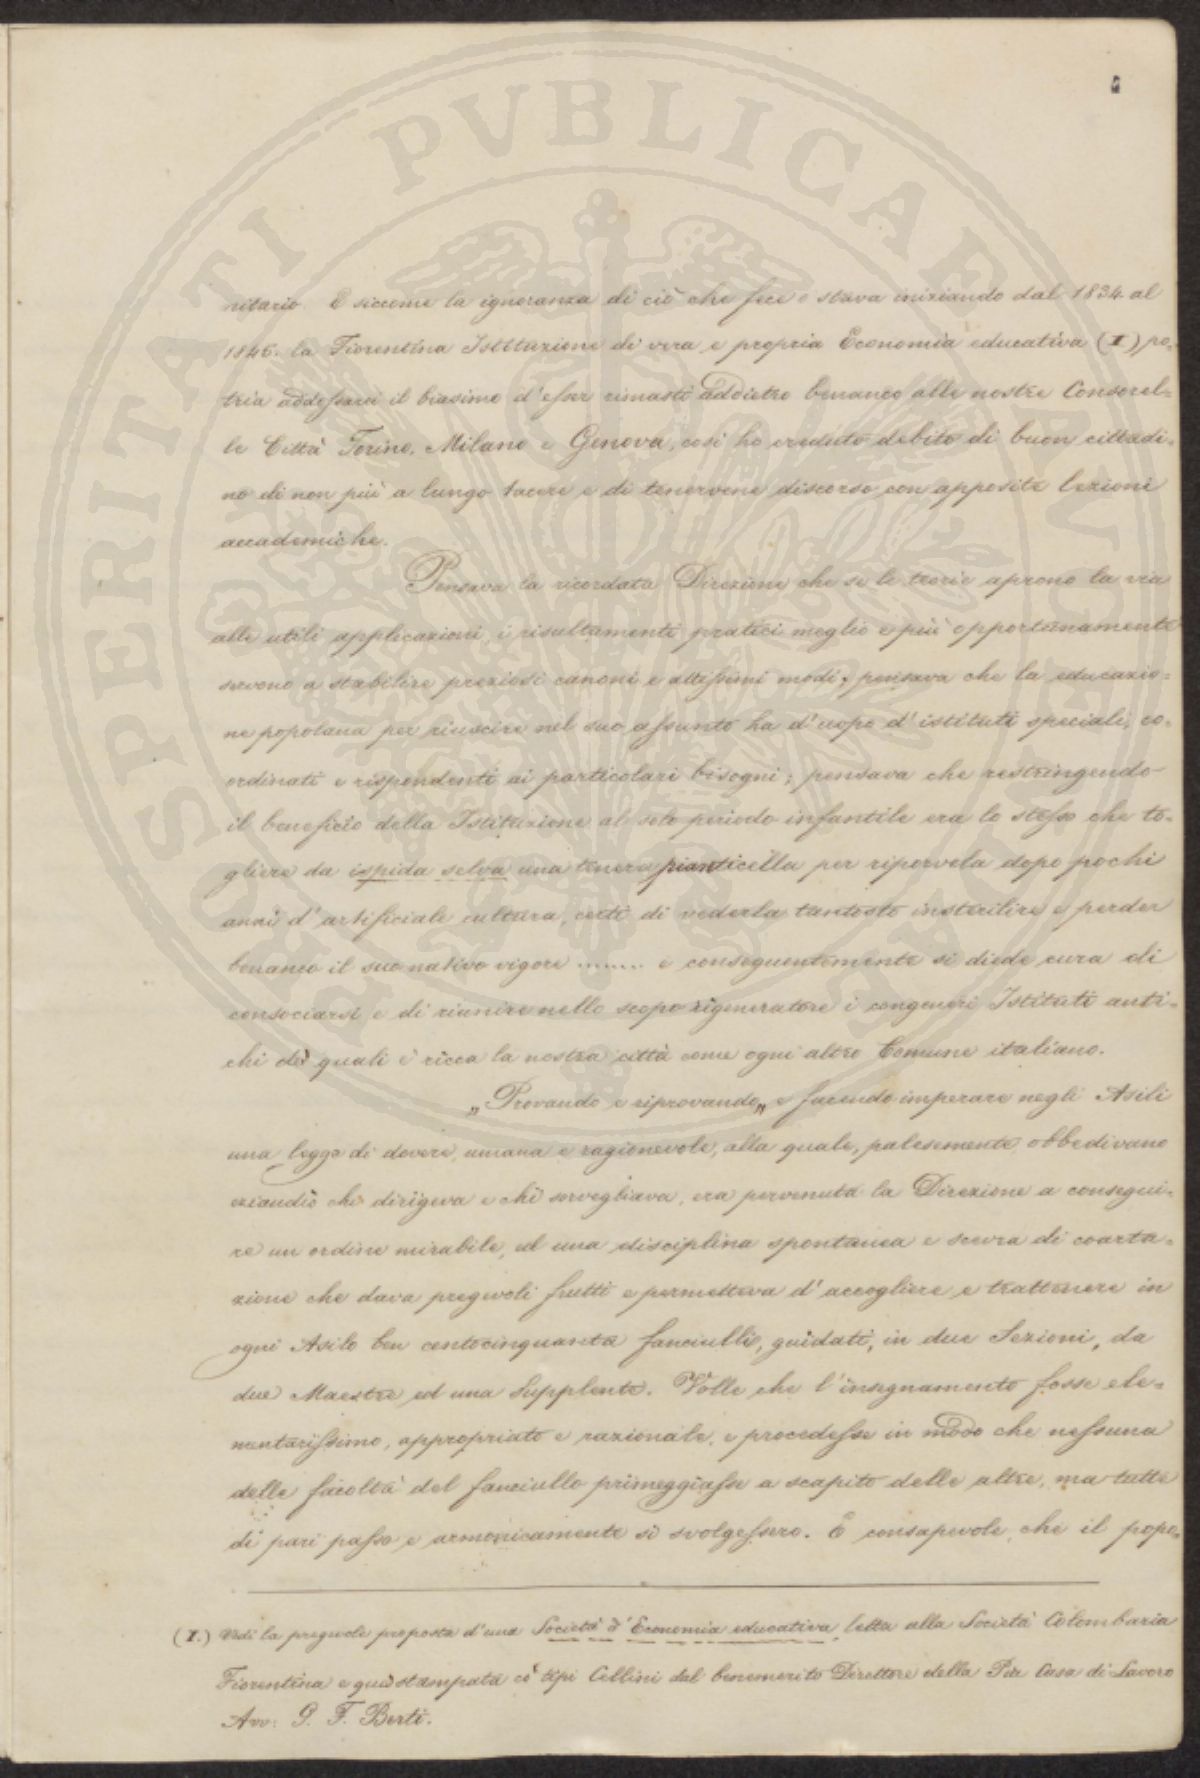 PROSPERITATI PVBLICAE
nitario. E siccome la ignoranza di ciò che fece o stava iniziando dal 1834 al
1846. la Fiorentina Istituzione di vera e propria Economia educativa (I) po=
tria addossarci il biasimo d'esser rimasti addietro benanco alle nostre Consorel=
le Città Torino, Milano e Genova, così ho creduto debito di buon cittadi=
no di non più a lungo tacere e di tenervene discorso con apposite lezioni
accademiche.
Pensava la ricordata Direzione che se le teorie aprono la via
alle utili applicazioni, i risultamenti pratici meglio e più opportunamente
servono a stabilire preziosi canoni e altissimi modi; pensava che la educazio=
ne popolana per riuscire nel suo assunto ha d'uopo d'istituti speciali, co=
ordinati e rispondenti ai particolari bisogni; pensava che restringendo
il beneficio della Istituzione al solo periodo infantile era lo stesso che to=
gliere da ispida selva una tenera pianticella per riporvela dopo pochi
anni d'artificiale cultura, certi di vederla tantosto insterilire e perder
benanco il suo nativo vigore ....... e conseguentemente si diede cura di
consociarsi e di riunire nello scopo rigeneratore i congeneri Istituti anti=
chi dei quali è ricca la nostra città come ogni altro Comune italiano.
„Provando e riprovando„ e facendo imperare negli Asili
una legge di dovere, umana e ragionevole, alla quale, palesemente obbedivano
eziandio chi dirigeva e chi sorvegliava, era pervenuta la Direzione a consegui=
re un ordine mirabile, ed una disciplina spontanea e scevra di coarta=
zione che dava pregevoli frutti e permetteva d'accogliere e trattenere in
ogni Asilo ben centocinquanta fanciulli, guidati, in due Sezioni, da
due Maestre ed una Supplente. Volle che l'insegnamento fosse ele=
mentarissimo, appropriato e razionale, e procedesse in modo che nessuna
delle facoltà del fanciullo primeggiasse a scapito delle altre, ma tutte
di pari passo e armonicamente si svolgessero. E consapevole, che il popo=
(I.) Vedi la pregevole proposta d'una Società d'Economia educativa, letta alla Società Colombaria
Fiorentina e qui stampata co' tipi Cellini dal benemerito Direttore della Pia Casa di Lavoro
Avv: P. F. Berti.